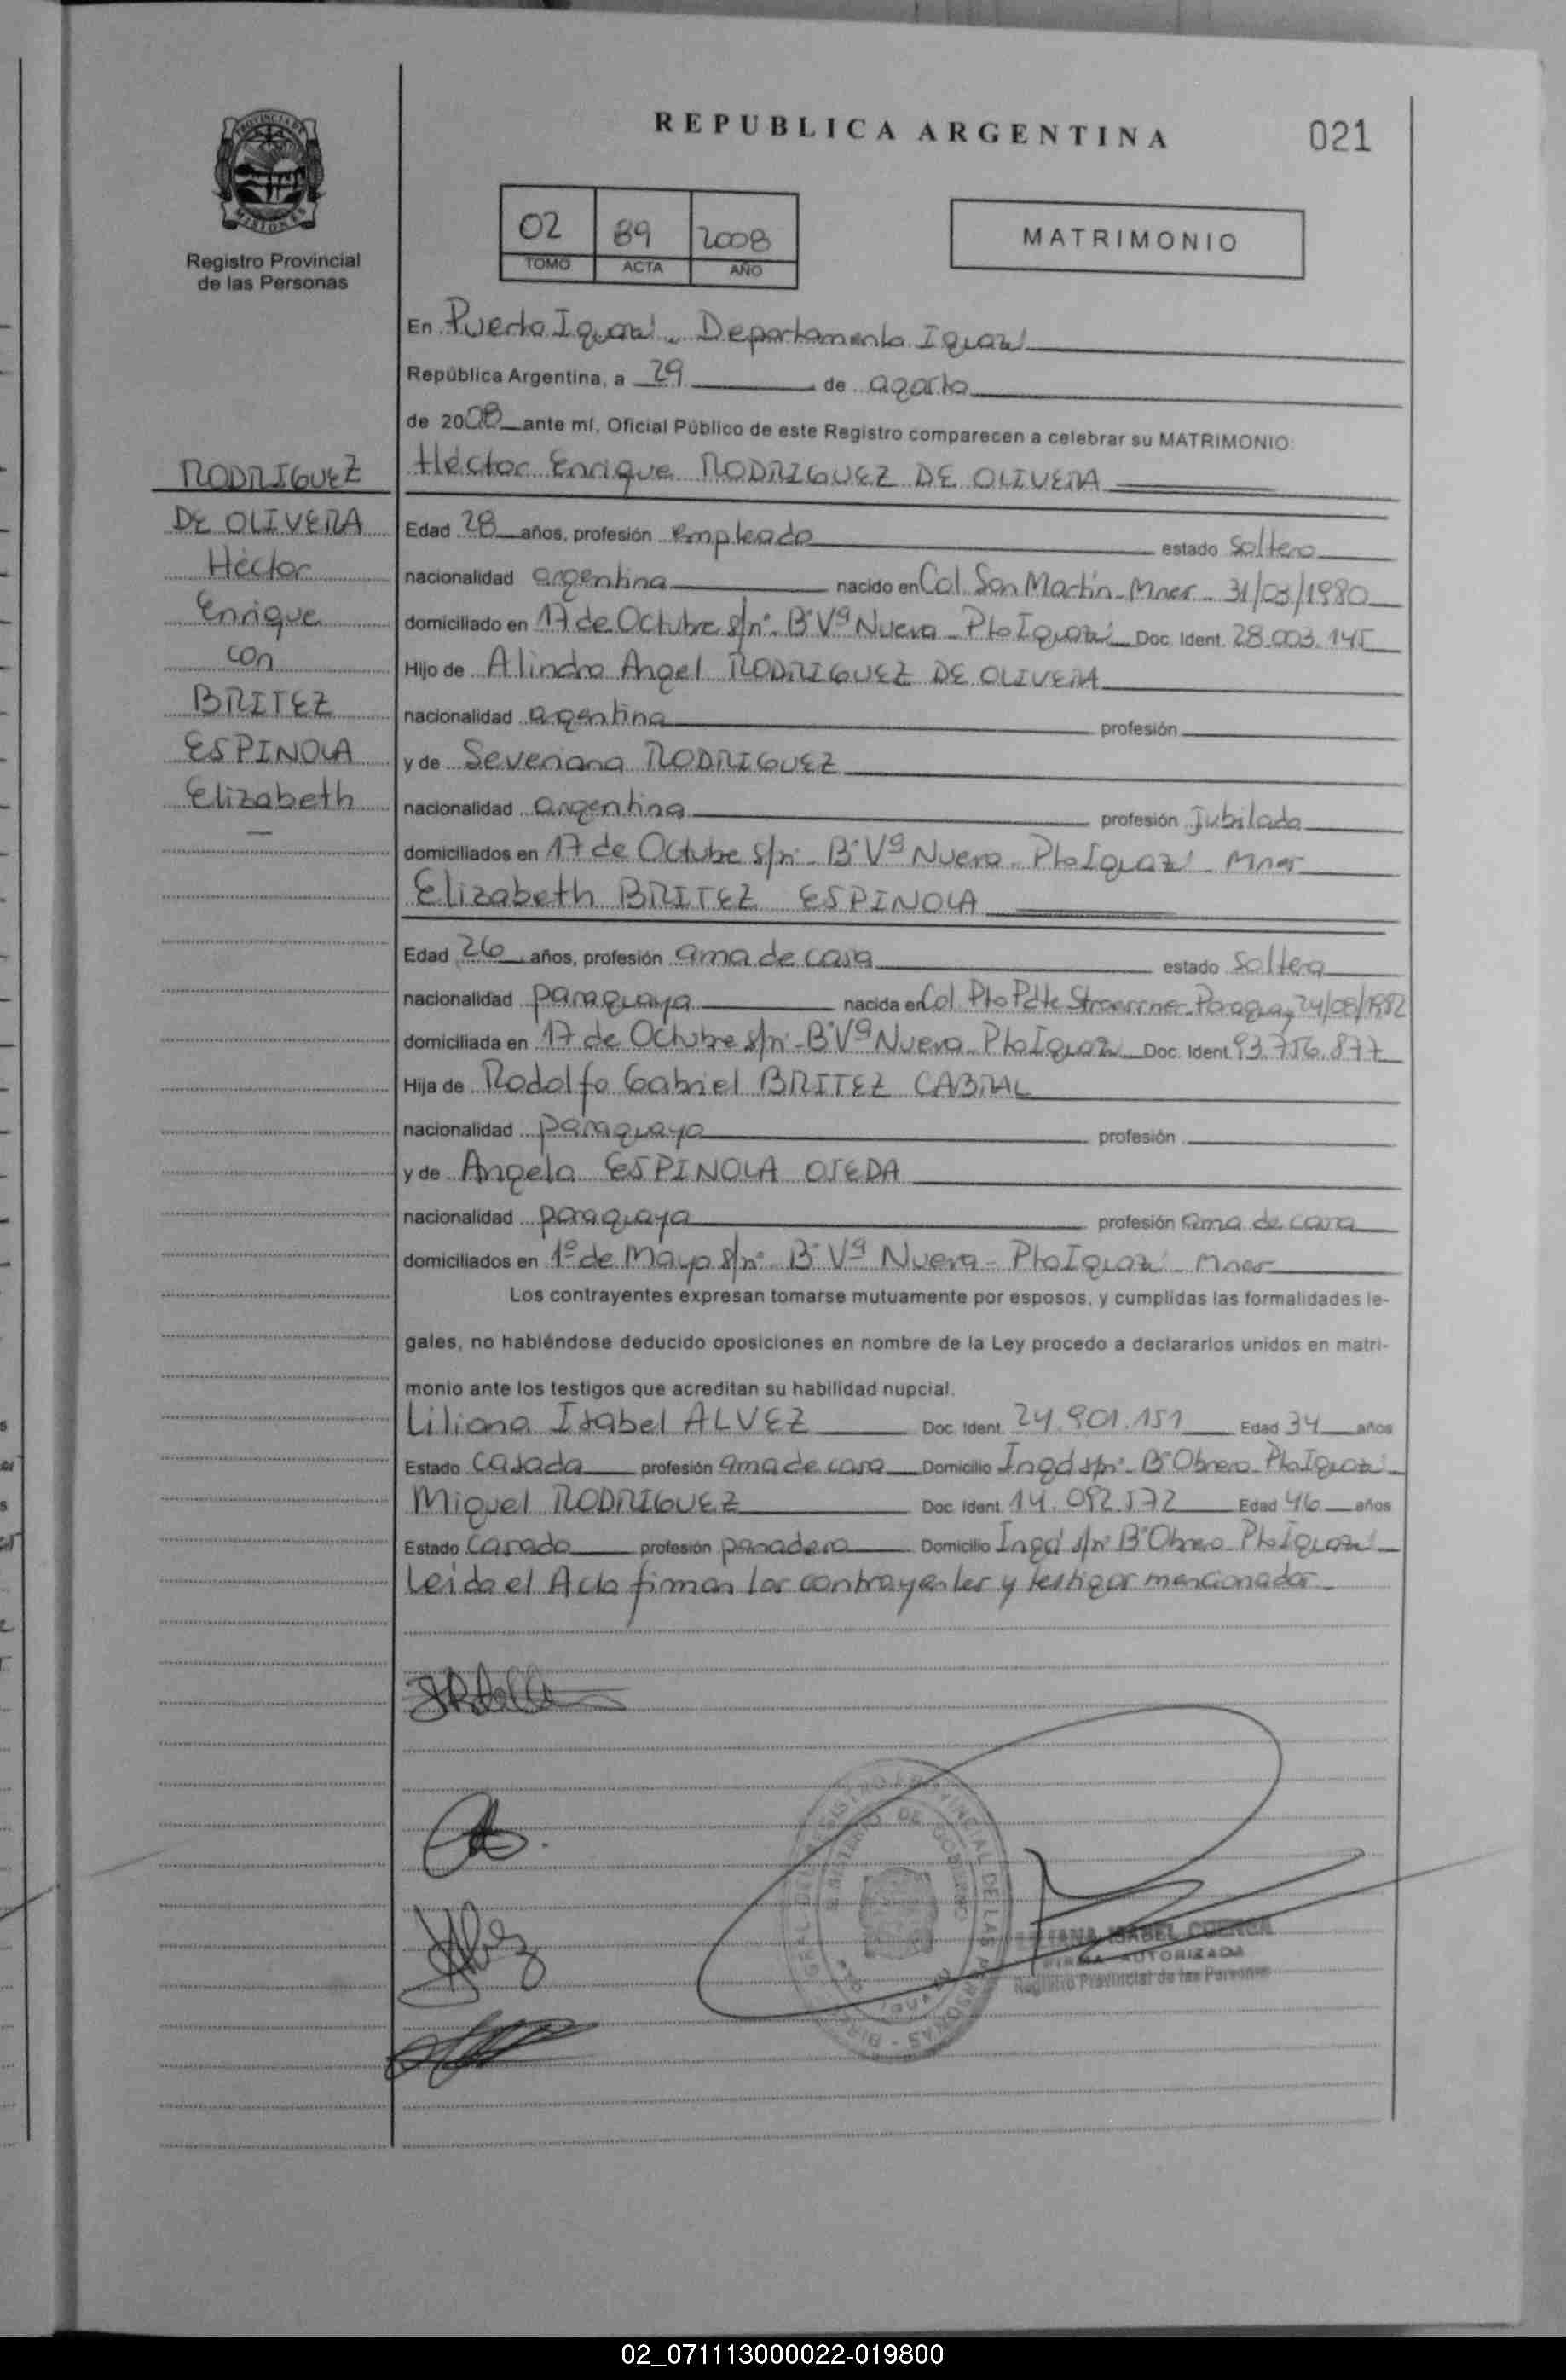 REPUBLICA ARGENTINA
021
PROVINCIA DE
MISIONES
Registro Provincial
de las Personas
02 89 2008
TOMO ACTA AÑO
MATRIMONIO
En Puerto Iguazú - Departamento Iguazú
República Argentina, a 29 de agosto
de 2008 ante mí, Oficial Público de este Registro comparecen a celebrar su MATRIMONIO:
Héctor Enrique RODRIGUEZ DE OLIVERA
RODRIGUEZ
DE OLIVERA
Héctor
Enrique
con
BRITEZ
ESPINOLA
Elizabeth
Edad 28 años, profesión empleado estado soltero
nacionalidad argentina nacido en Col. San Martín - Mnes - 31/03/1980
domiciliado en 17 de Octubre s/nº - Bº Vª Nueva - Pto Iguazú Doc. Ident. 28.003.145
Hijo de Alindro Angel RODRIGUEZ DE OLIVERA
nacionalidad argentina profesión
y de Severiana RODRIGUEZ
nacionalidad argentina profesión jubilada
domiciliados en 17 de Octubre s/nº - Bº Vª Nueva - Pto Iguazú - Mnes
Elizabeth BRITEZ ESPINOLA
Edad 26 años, profesión ama de casa estado soltera
nacionalidad paraguaya nacida en Col. Pto Pdte Stroessner - Paraguay 24/08/1982
domiciliada en 17 de Octubre s/nº - Bº Vª Nueva - Pto Iguazú Doc. Ident. 93.756.877
Hija de Rodolfo Gabriel BRITEZ CABRAL
nacionalidad paraguayo profesión
y de Angela ESPINOLA OJEDA
nacionalidad paraguaya profesión ama de casa
domiciliados en 1º de Mayo s/nº - Bº Vª Nueva - Pto Iguazú - Mnes
Los contrayentes expresan tomarse mutuamente por esposos, y cumplidas las formalidades le-
gales, no habiéndose deducido oposiciones en nombre de la Ley procedo a declararlos unidos en matri-
monio ante los testigos que acreditan su habilidad nupcial.
Liliana Isabel ALVEZ Doc. Ident. 24.901.151 Edad 34 años
Estado casada profesión ama de casa Domicilio Ingd s/nº - Bº Obrero - Pto Iguazú
Miguel RODRIGUEZ Doc. Ident. 14.092.572 Edad 46 años
Estado casado profesión panadero Domicilio s/nº Bº Obrero - Pto Iguazú
Leida el Acta firman los contrayentes y testigos mencionados
ISABEL CUENCA
FIRMA AUTORIZADA
Registro Provincial de las Personas
02_071113000022-019800